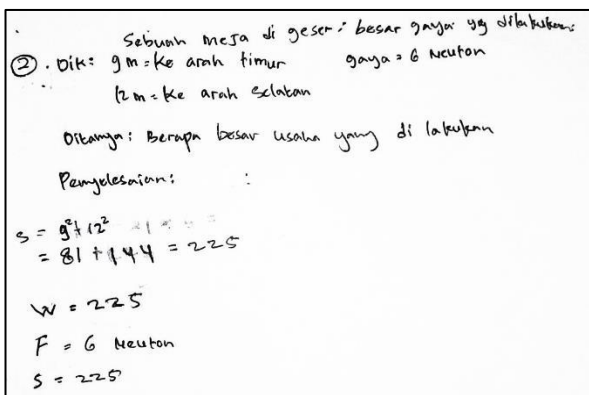 Sebuah meja di geser : besar gaya yg dilakukan:
② . Dik: 9 m = Ke arah timur gaya = 6 Neuton
12 m = Ke arah Selatan
Ditanya: Berapa besar usaha yang di lakukan
Penyelesaian: :
S = 9² + 12²
= 81 + 144 = 225
W = 225
F = 6 Neuton
S = 225